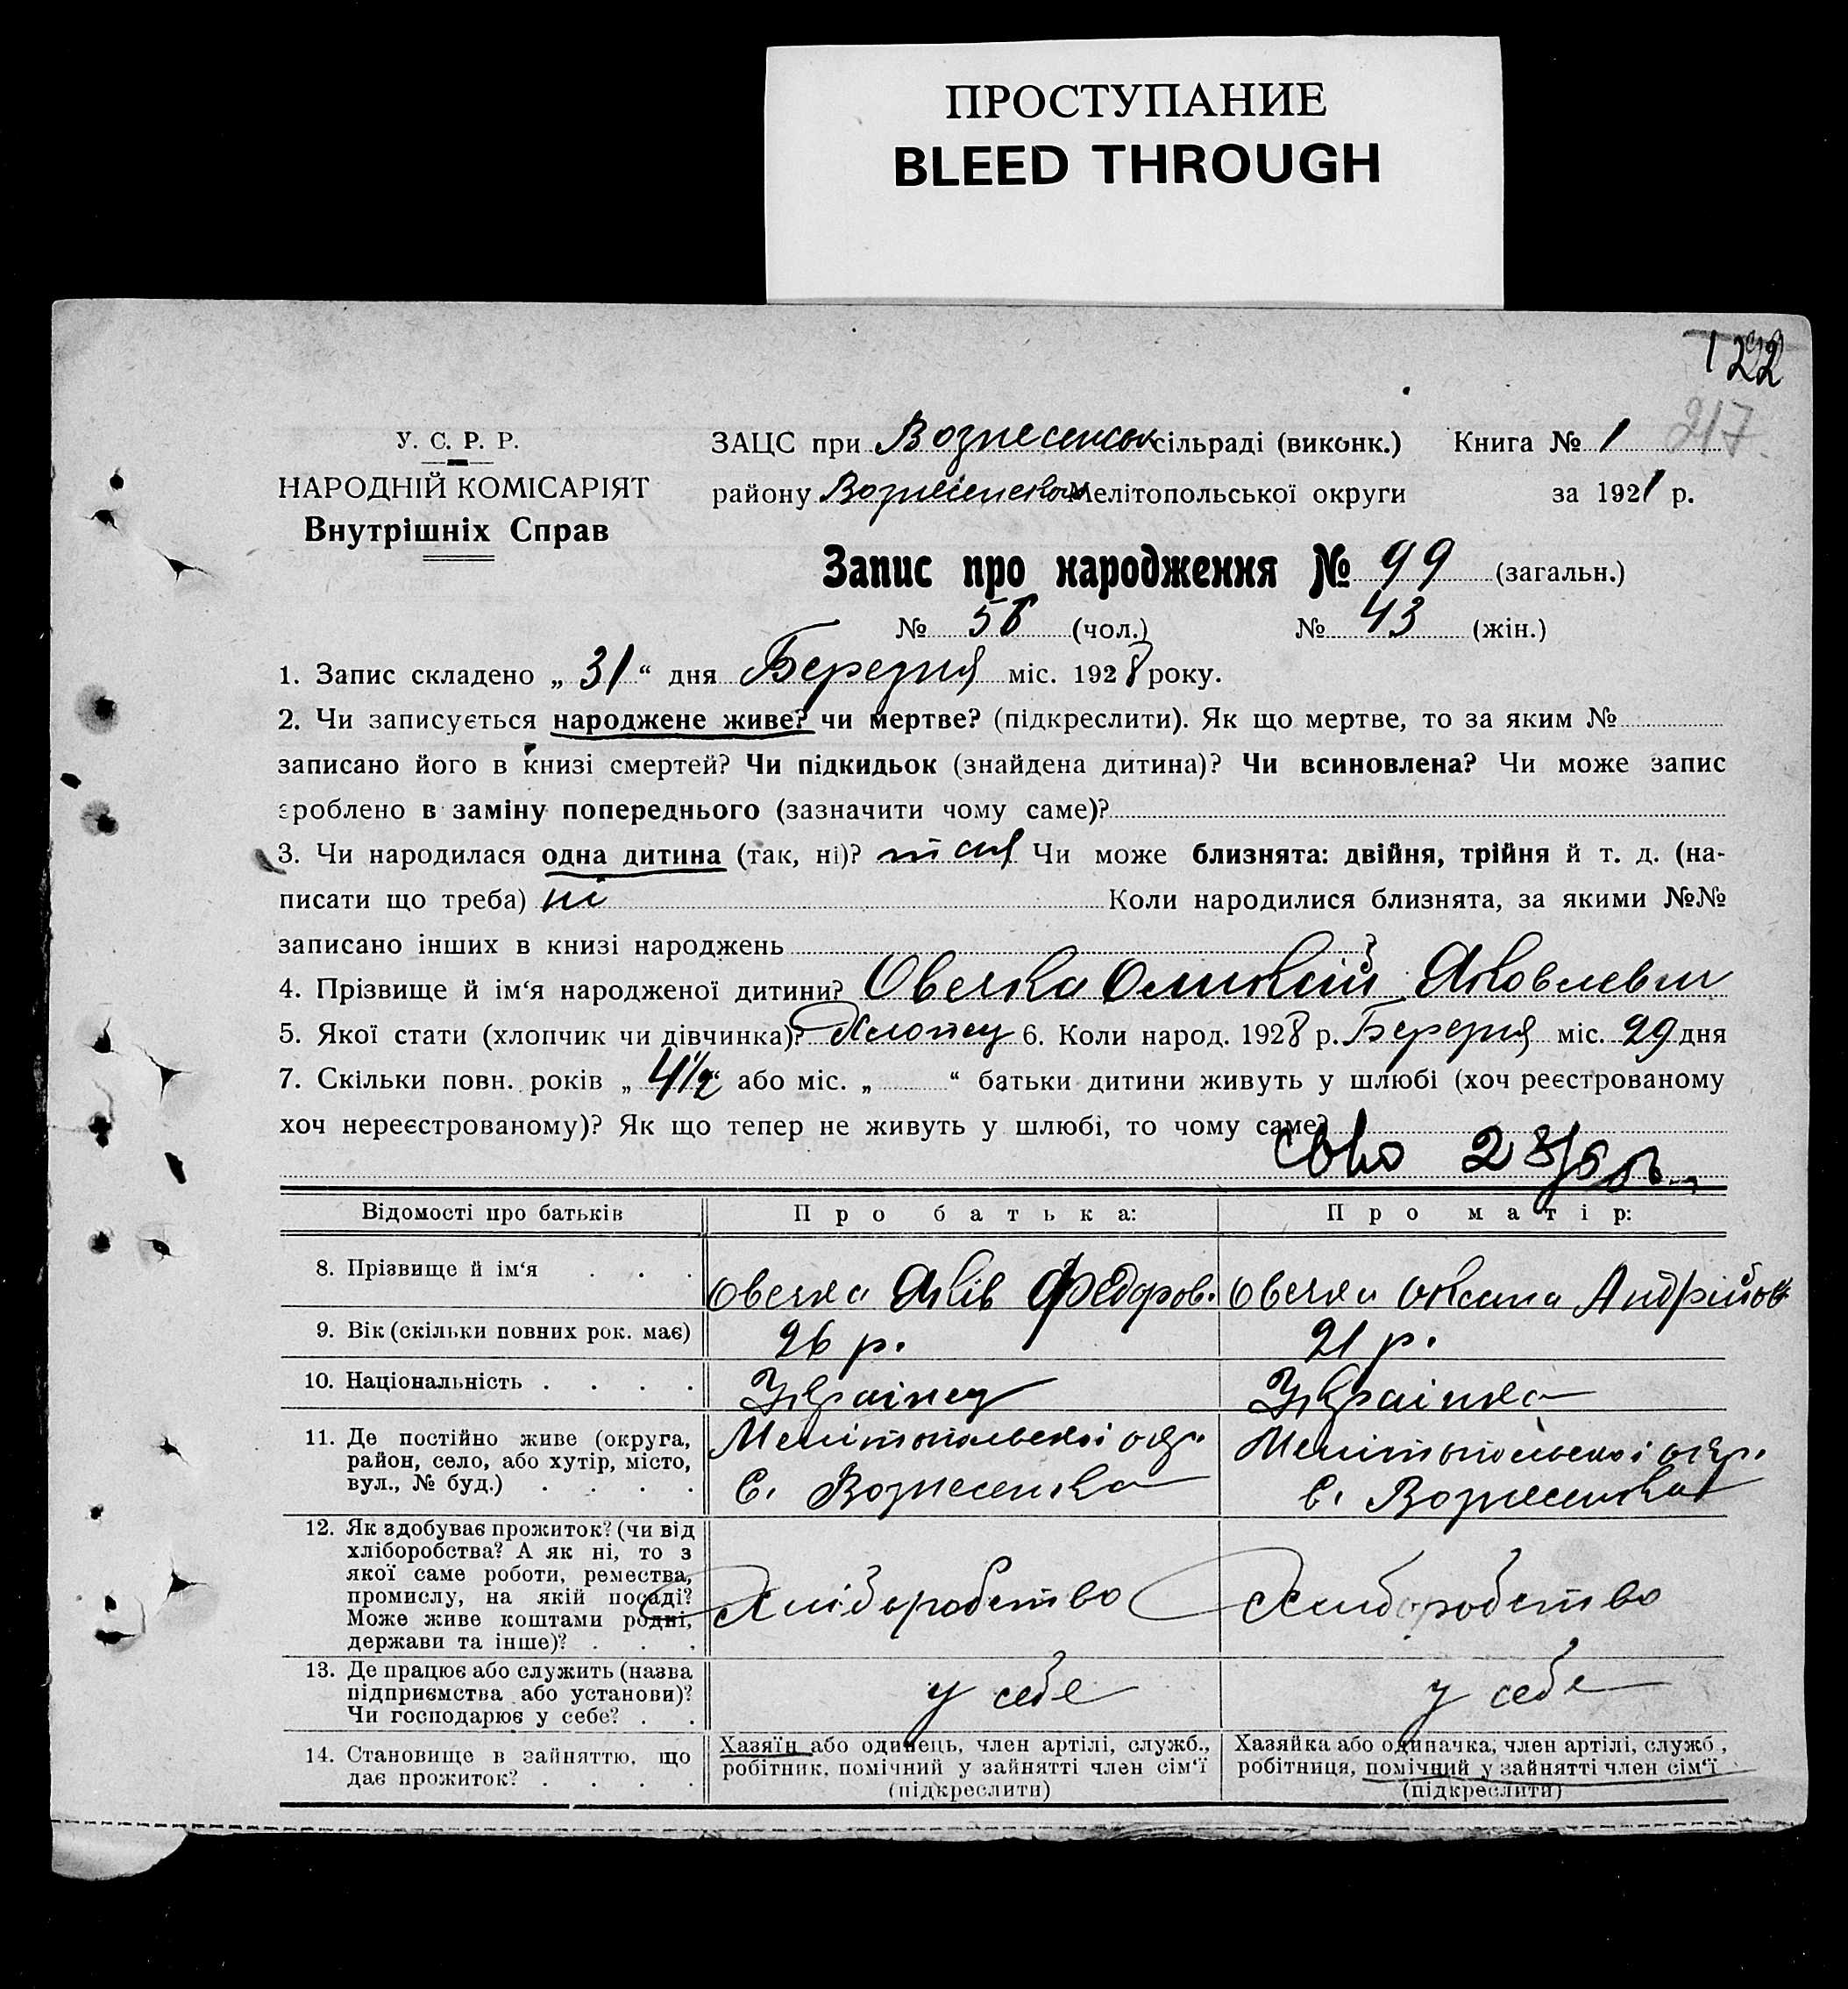 ПРОСТУПАНИЕ
BLEED THROUGH
122
217
У. С. Р. Р.
НАРОДНІЙ КОМІСАРІЯТ
Внутрішніх Справ
ЗАЦС при Вознесенськ сільраді (виконк.) Книга № 1
району Вознесенськ Мелітопольської округи за 192 р.
Запис про народження № 99 (загальн.)
№ 56 (чол.) № 43 (жін.)
1. Запис складено „ 31 “ дня Березня міс. 1928 року.
2. Чи записується народжене живе? чи мертве? (підкреслити). Як що мертве, то за яким №
записано його в книзі смертей? Чи підкидьок (знайдена дитина)? Чи всиновлена? Чи може запис
зроблено в заміну попереднього (зазначити чому саме)?
3. Чи народилася одна дитина (так, ні)? так Чи може близнята: двійня, трійня й т. д. (на-
писати що треба) ні Коли народилися близнята, за якими №№
записано інших в книзі народжень ?
4. Прізвище й ім‘я народженої дитини? Овечка Олексій Яковлевич
5. Якої стати (хлопчик чи дівчинка)? Хлопец 6. Коли народ. 1928 р. Березня міс. 29 дня
7. Скільки повн. років „ 4 1/2 “ або міс. „ “ батьки дитини живуть у шлюбі (хоч реєстрованому
хоч нереєстрованому)? Як що тепер не живуть у шлюбі, то чому саме?
Відомості про батьків Про батька: Про матір:
8. Прізвище й ім‘я . . . Овечка Яків Федоров. Овечка Оксана Андрійов
9. Вік (скільки повних рок. має) 26 р. 21 р.
10. Національність . . . . Українец Українка
11. Де постійно живе (округа, район, село, або хутір, місто, вул., № буд.) . . . .
Мелітопольскої окр. Мелітопольскої окр.
С. Вознесенка С. Вознесенка
12. Як здобуває прожиток? (чи від
хліборобства? А як ні, то з
якої саме роботи, ремества,
промислу, на якій посаді?
Може живе коштами родні,
держави та інше)? . . .
Хліборобство Хліборобство
13. Де працює або служить (назва
підприємства або установи)?
Чи господарює у себе? . .
у себе у себе
14. Становище в зайняттю, що
дає прожиток? . . . .
Хазяїн або одинець, член артілі, служб.,
робітник, помічний у зайнятті член сім‘ї
(підкреслити)
Хазяйка або одиначка, член артілі, служб.,
робітниця, помічний у зайнятті член сім‘ї
(підкреслити)